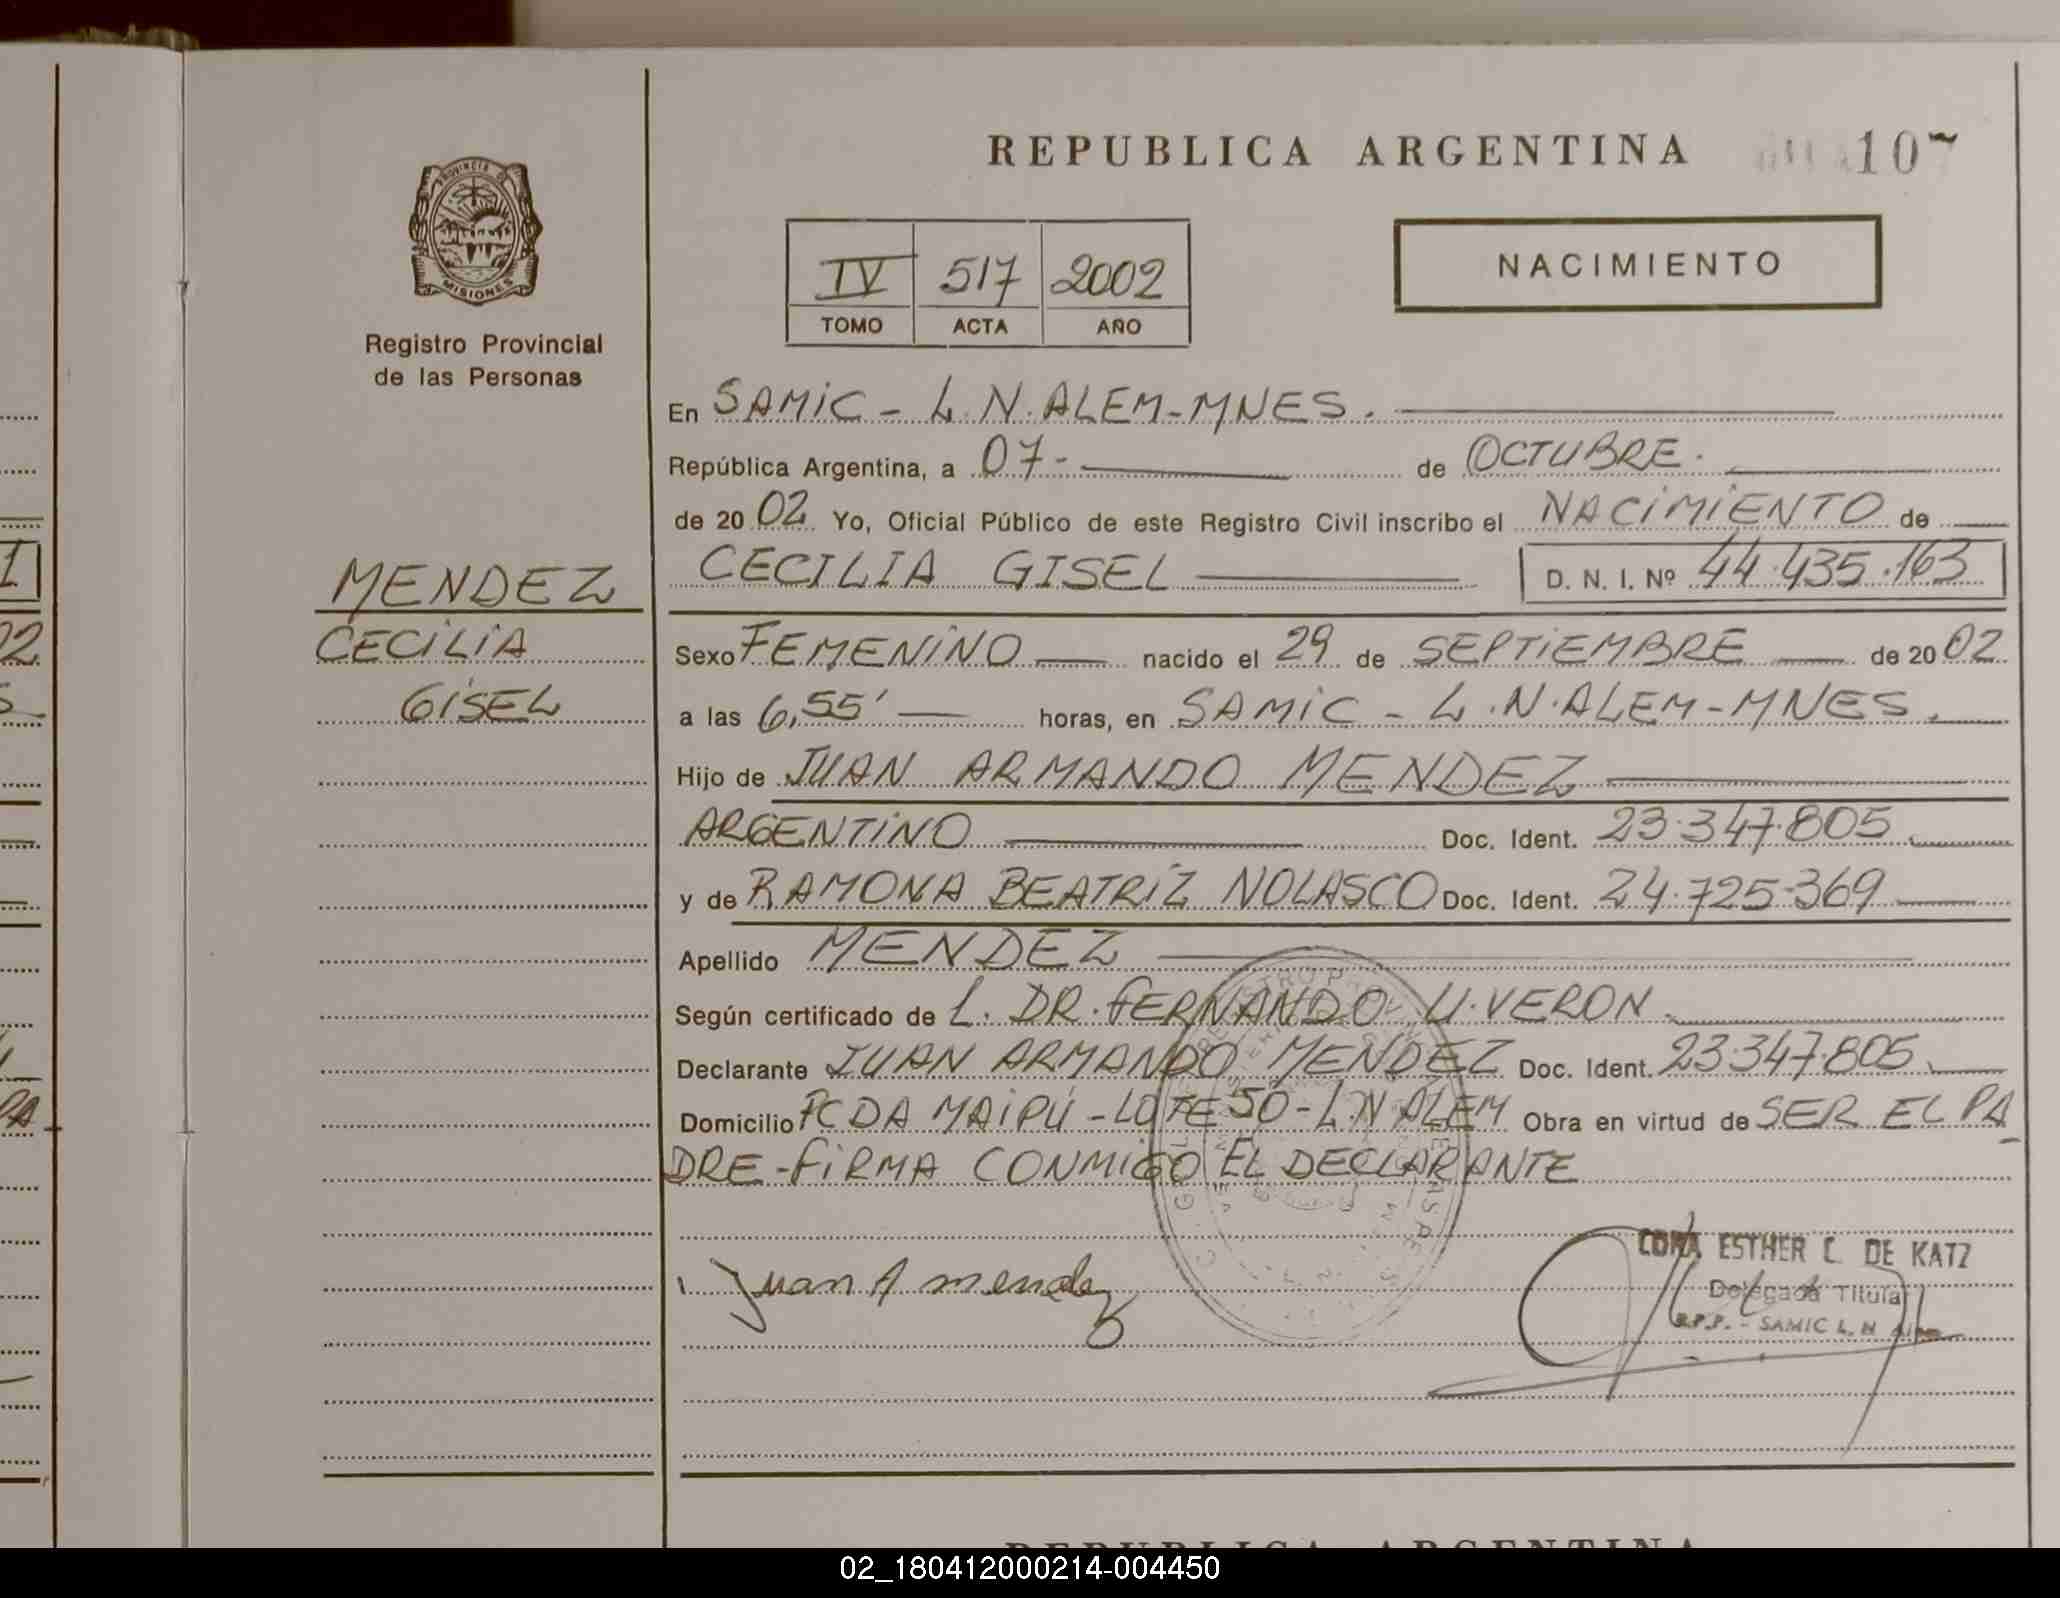 REPUBLICA ARGENTINA
107
PROVINCIA DE
MISIONES
Registro Provincial
de las Personas
IV 517 2002
TOMO ACTA AÑO
NACIMIENTO
En SAMIC - L.N. ALEM - MNES.
República Argentina, a 07- de OCTUBRE.
de 2002 Yo, Oficial Público de este Registro Civil inscribo el NACIMIENTO de
CECILIA GISEL D. N. I. Nº 44.435.163
MENDEZ
CECILIA
GISEL
Sexo FEMENINO nacido el 29 de SEPTIEMBRE de 2002
a las 6,55' horas, en SAMIC - L.N. ALEM - MNES.
Hijo de JUAN ARMANDO MENDEZ
ARGENTINO Doc. Ident. 23.347.805
y de RAMONA BEATRIZ NOLASCO Doc. Ident. 24.725.369
Apellido MENDEZ
Según certificado de L. DR. FERNANDO U. VERON.
Declarante JUAN ARMANDO MENDEZ Doc. Ident. 23.347.805
Domicilio PCDA MAIPÚ - LOTE 50 - L.N ALEM Obra en virtud de SER EL PA
DRE - FIRMA CONMIGO EL DECLARANTE
Juan A mendez
CORA ESTHER C. DE KATZ
Delegada Titular
R.P.P. - SAMIC L. N Alem
REPUBLICA ARGENTINA
02_180412000214-004450